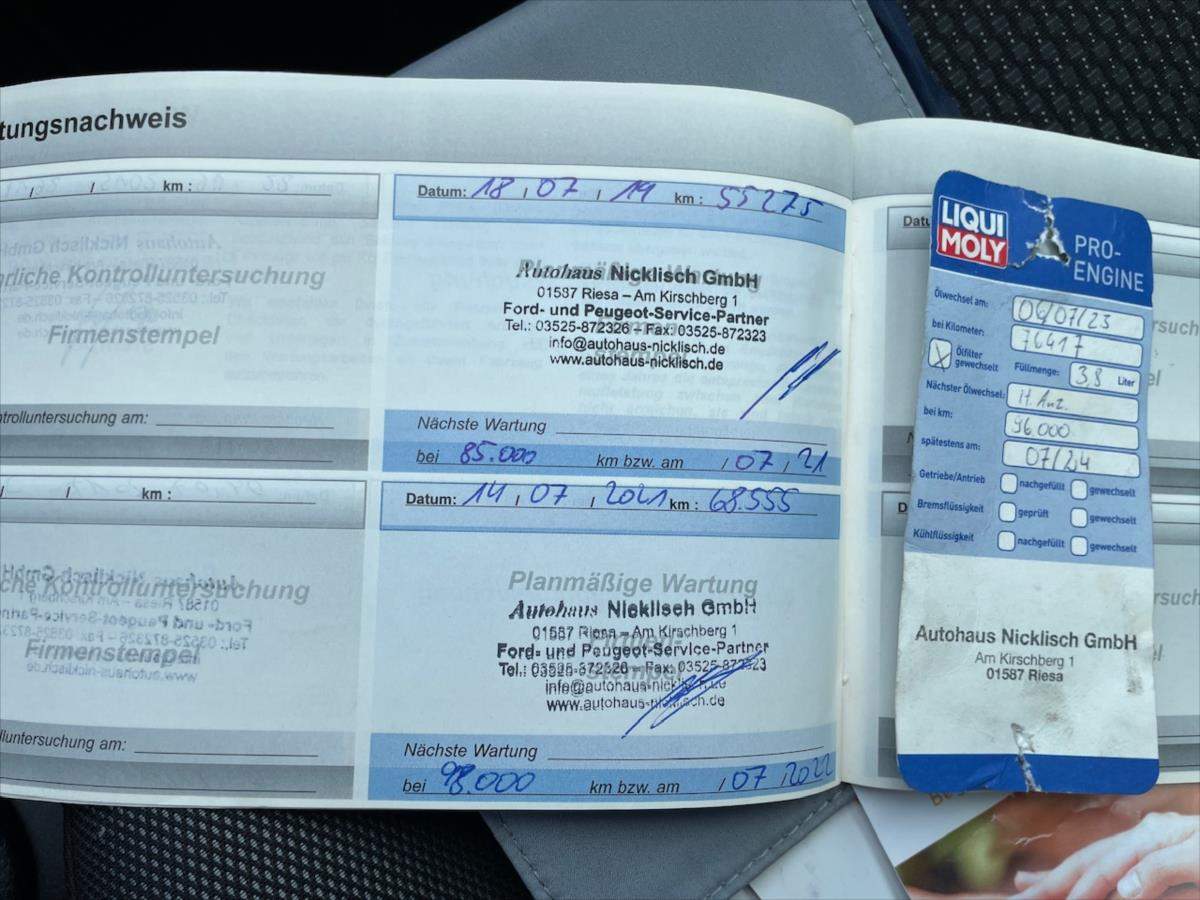 tungsnachweis
/ / km :
rliche Kontrolluntersuchung
Firmenstempel
ntrolluntersuchung am:
/ / km :
che Kontrolluntersuchung
Firmenstempel
lluntersuchung am:
Datum: 18 / 07 / 19 km : 55275
Planmäßige Wartung
Autohaus Nicklisch GmbH
01587 Riesa – Am Kirschberg 1
Ford- und Peugeot-Service-Partner
Tel.: 03525-872326 – Fax: 03525-872323
info@autohaus-nicklisch.de
www.autohaus-nicklisch.de
Nächste Wartung
bei 85.000 km bzw. am / 07 / 21
Datum: 14 / 07 / 2021 km : 68.555
Planmäßige Wartung
Autohaus Nicklisch GmbH
01587 Riesa – Am Kirschberg 1
Ford- und Peugeot-Service-Partner
Tel.: 03525-872326 – Fax: 03525-872323
info@autohaus-nicklisch.de
www.autohaus-nicklisch.de
Nächste Wartung
bei 98.000 km bzw. am / 07 2022
Datu
LIQUI
MOLY
PRO-
ENGINE
Ölwechsel am: 06/07/23
bei Kilometer: 76417
X Ölfilter gewechselt Füllmenge: 3,8 Liter
Nächster Ölwechsel: H. Anz.
bei km: 96 000
spätestens am: 07/24
Getriebe/Antrieb nachgefüllt gewechselt
Bremsflüssigkeit geprüft gewechselt
Kühlflüssigkeit nachgefüllt gewechselt
Autohaus Nicklisch GmbH
Am Kirschberg 1
01587 Riesa